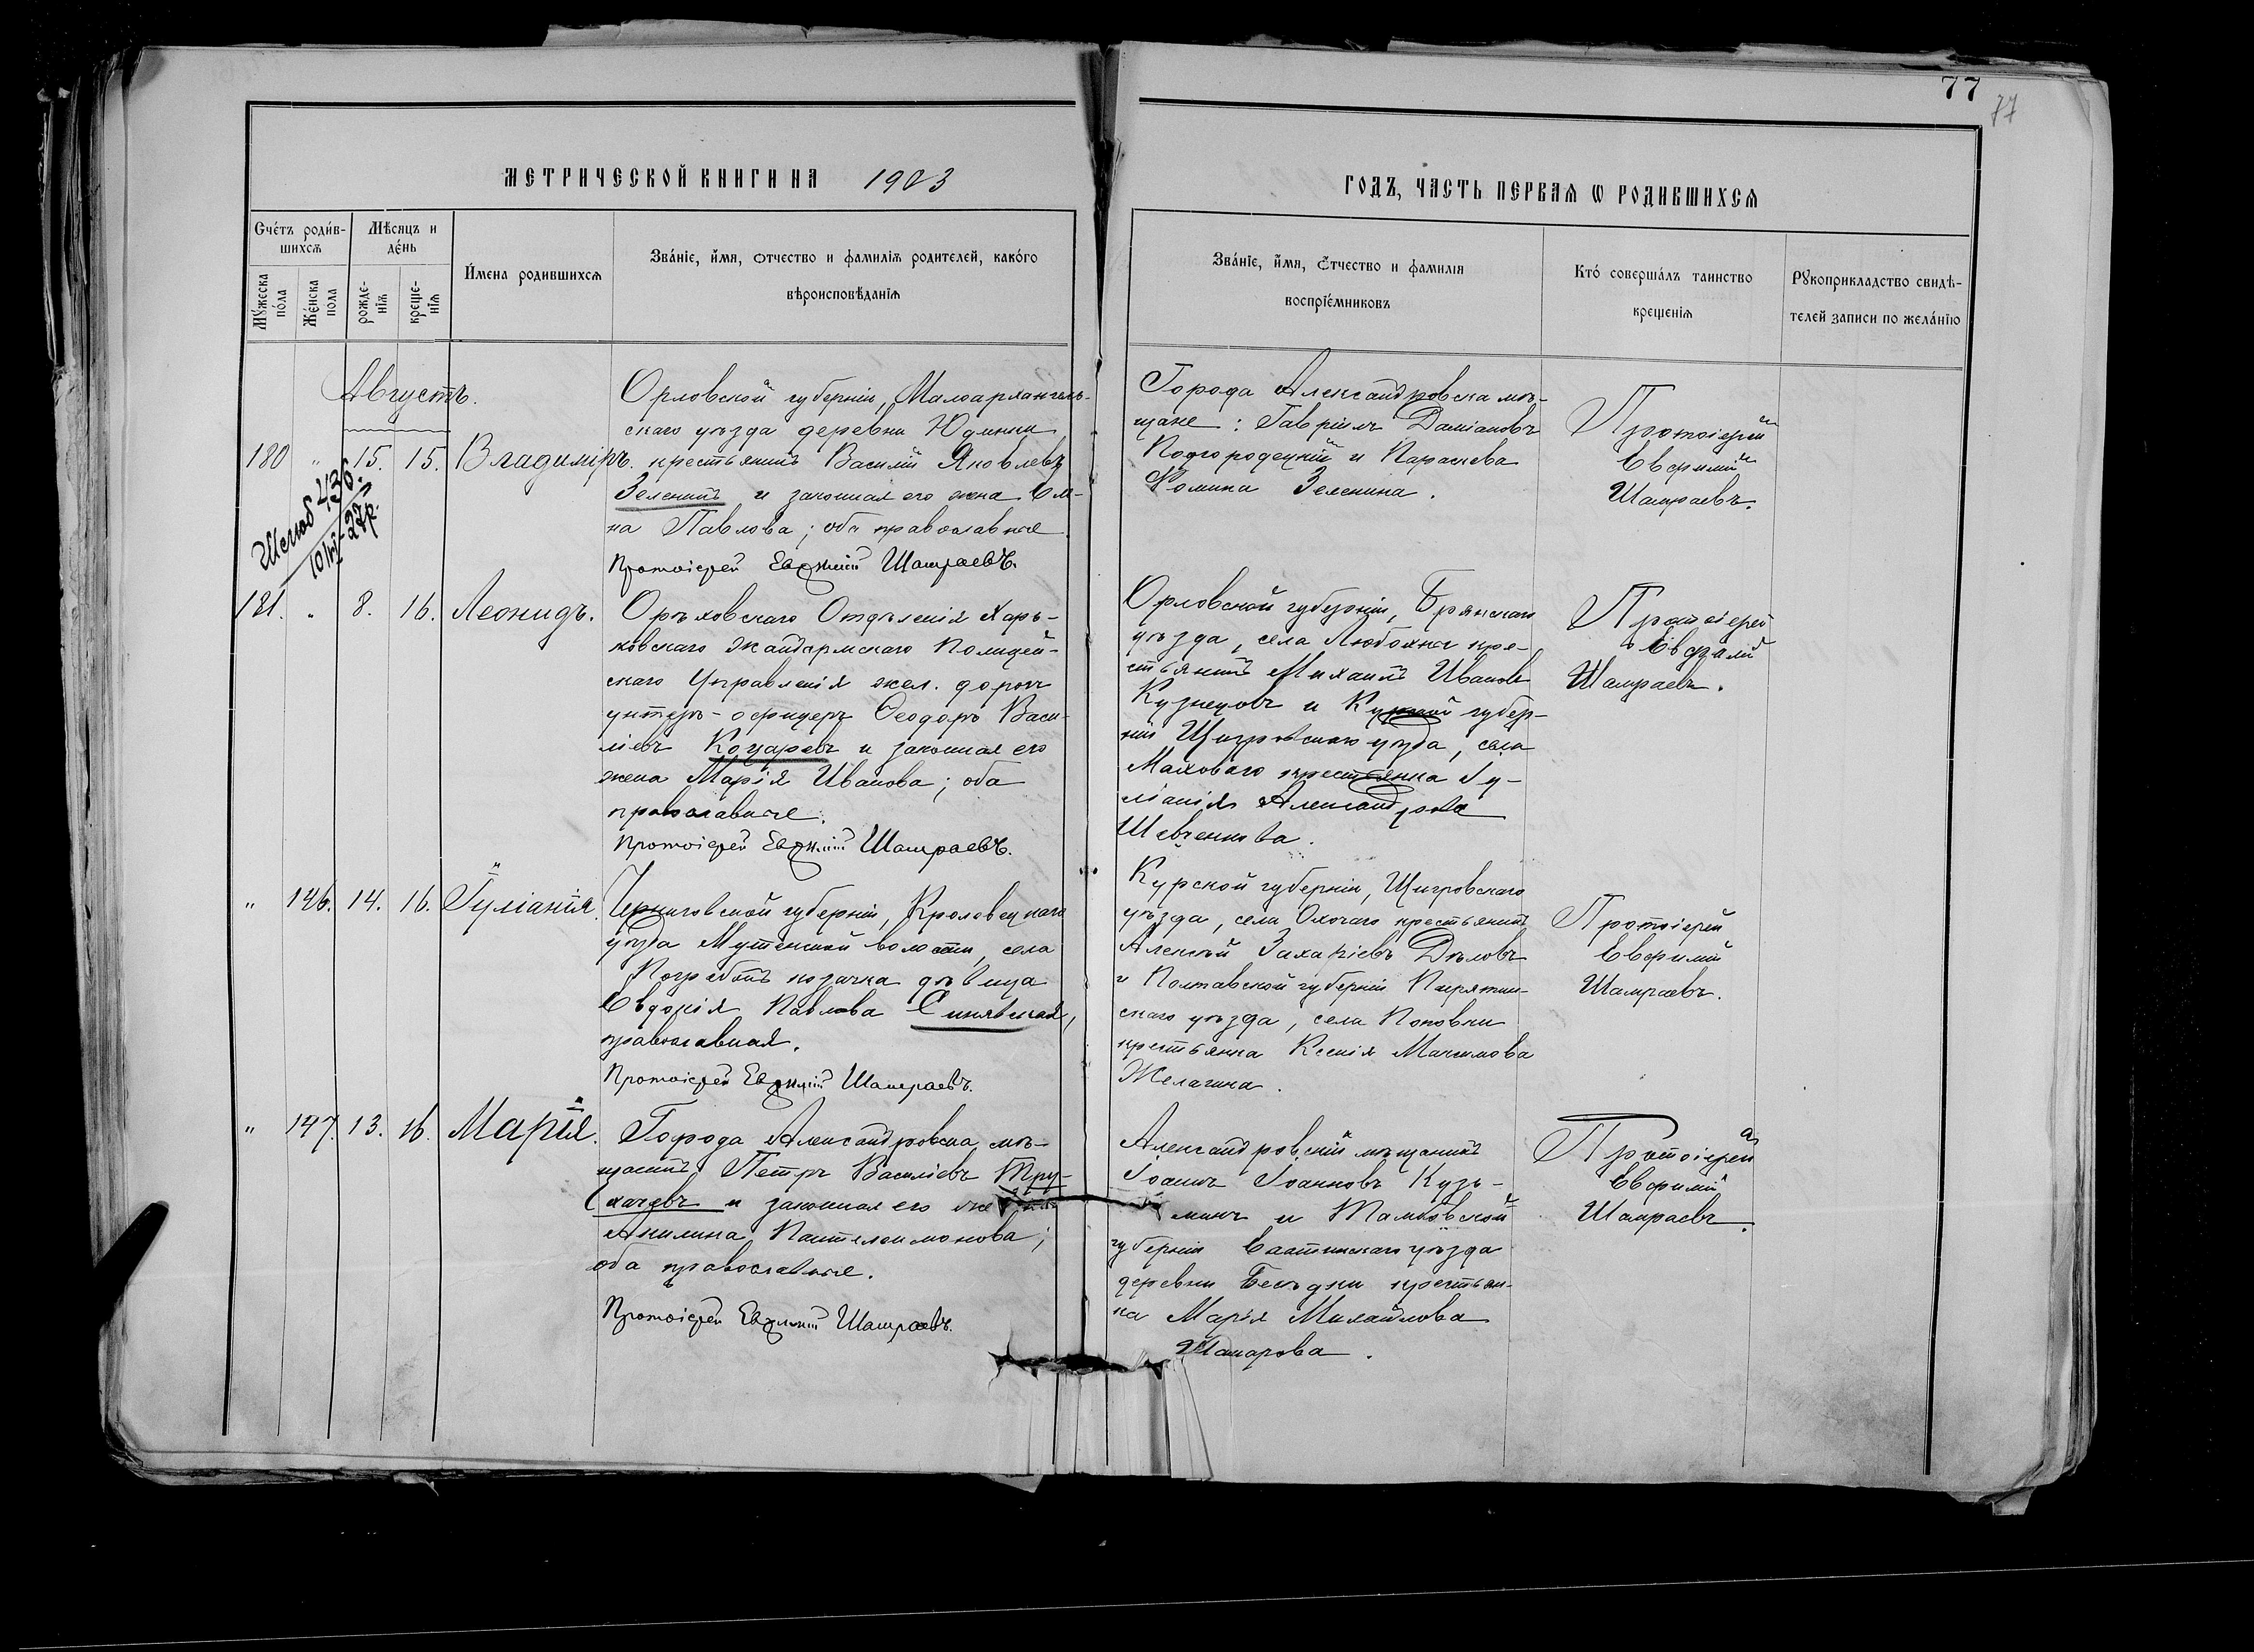 77
77
МЕТРИЧЕСКОЙ КНИГИ НА 1903
ГОДЪ, ЧАСТЬ ПЕРВАѦ Ѡ РОДИВШИХСѦ
Счётъ роди́вшихсѧ
Мѣсяцъ и де́нь
Му́жеска по́ла
Же́нска пола
рожденїѧ
крещенїѧ
И́мена родившихсѧ
Зва́нїе, и́мѧ, отчество и фамилїѧ родителей, како́го
вѣроисповѣ́данїѧ
Зва́нїе, и́мѧ, о́тчество и фамилїя
воспрїе́мниковъ
Кто́ соверша́лъ таинство
крещенїѧ
Рꙋкоприкладство свидѣ-
телей записи по жела́нїю
Августъ.
180 " 15. 15. Владиміръ.
Орловской губерніи, Малоархангель-
скаго уѣзда деревни Юдинки
крестьянинъ Василій Яковлевъ
Зеленинъ и законная его жена Еле-
на Павлова; оба православные.
Протоіерей Евфимій Шамраевъ.
Города Александровска мѣ-
щане: Гавріилъ Даміановъ
Подгородецкій и Параскева
Фомина Зеленина.
Протоіерей
Евфимій
Шамраевъ.
436.
10/III-27р.
181. " 8. 16. Леонидъ.
Орѣховскаго Отдѣленія Харь-
ковскаго Жандармскаго Полицей-
скаго Управленія жел. дорогъ
унтеръ-офицеръ Ѳеодоръ Васи-
ліевъ Коцаревъ и законная его
жена Марія Иванова; оба
православные.
Протоіерей Евфимій Шамраевъ.
Орловской губерніи, Брянскаго
уѣзда, села Любохны кре-
стьянинъ Михаилъ Ивановъ
Кузнецовъ и Курской губер-
ніи Щигровскаго уѣзда, села
Маховаго крестьянка Іу-
ліанія Александрова
Протоіерей
Евфимій
Шамраевъ.
" 146. 14. 16. Іуліанія.
Черниговской губерніи, Кролевецкаго
уѣзда Мутенской волости, села
Погребокъ козачка дѣвица
Евдокія Павлова Синявская,
православная.
Протоіерей Евфимій Шамраевъ.
Курской губерніи, Щигровскаго
уѣзда, села Охочаго крестьянинъ
Алексѣй Захаріевъ Дѣловъ
и Полтавской губерніи Пирятин-
скаго уѣзда, села Поповки
крестьянка Ксенія Максимова
Желагина.
Протоіерей
Евфимій
Шамраевъ.
" 147. 13. 16. Марія.
Города Александровска мѣ-
щанинъ Петръ Василіевъ Тру-
хачевъ и законная его жена
Акилина Пантелеимонова;
оба православные.
Протоіерей Евфимій Шамраевъ.
Александровскій мѣщанинъ
Іоаннъ Іоанновъ Кузь-
минъ и Тамбовской
губерніи уѣзда
деревни Бесѣдки крестьян-
ка Марія Михайлова
Шапарова.
Протоіерей
Евфимій
Шамраевъ.